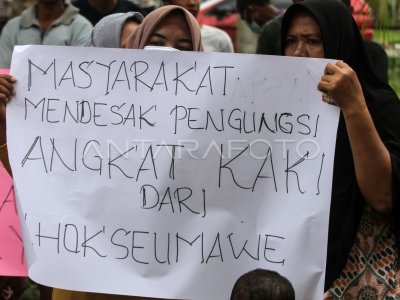 MASYARAKAT
MENDESAK PENGUNGSI
ANGKAT KAKI
DARI
LHOKSEUMAWE
ANTARAFOTO